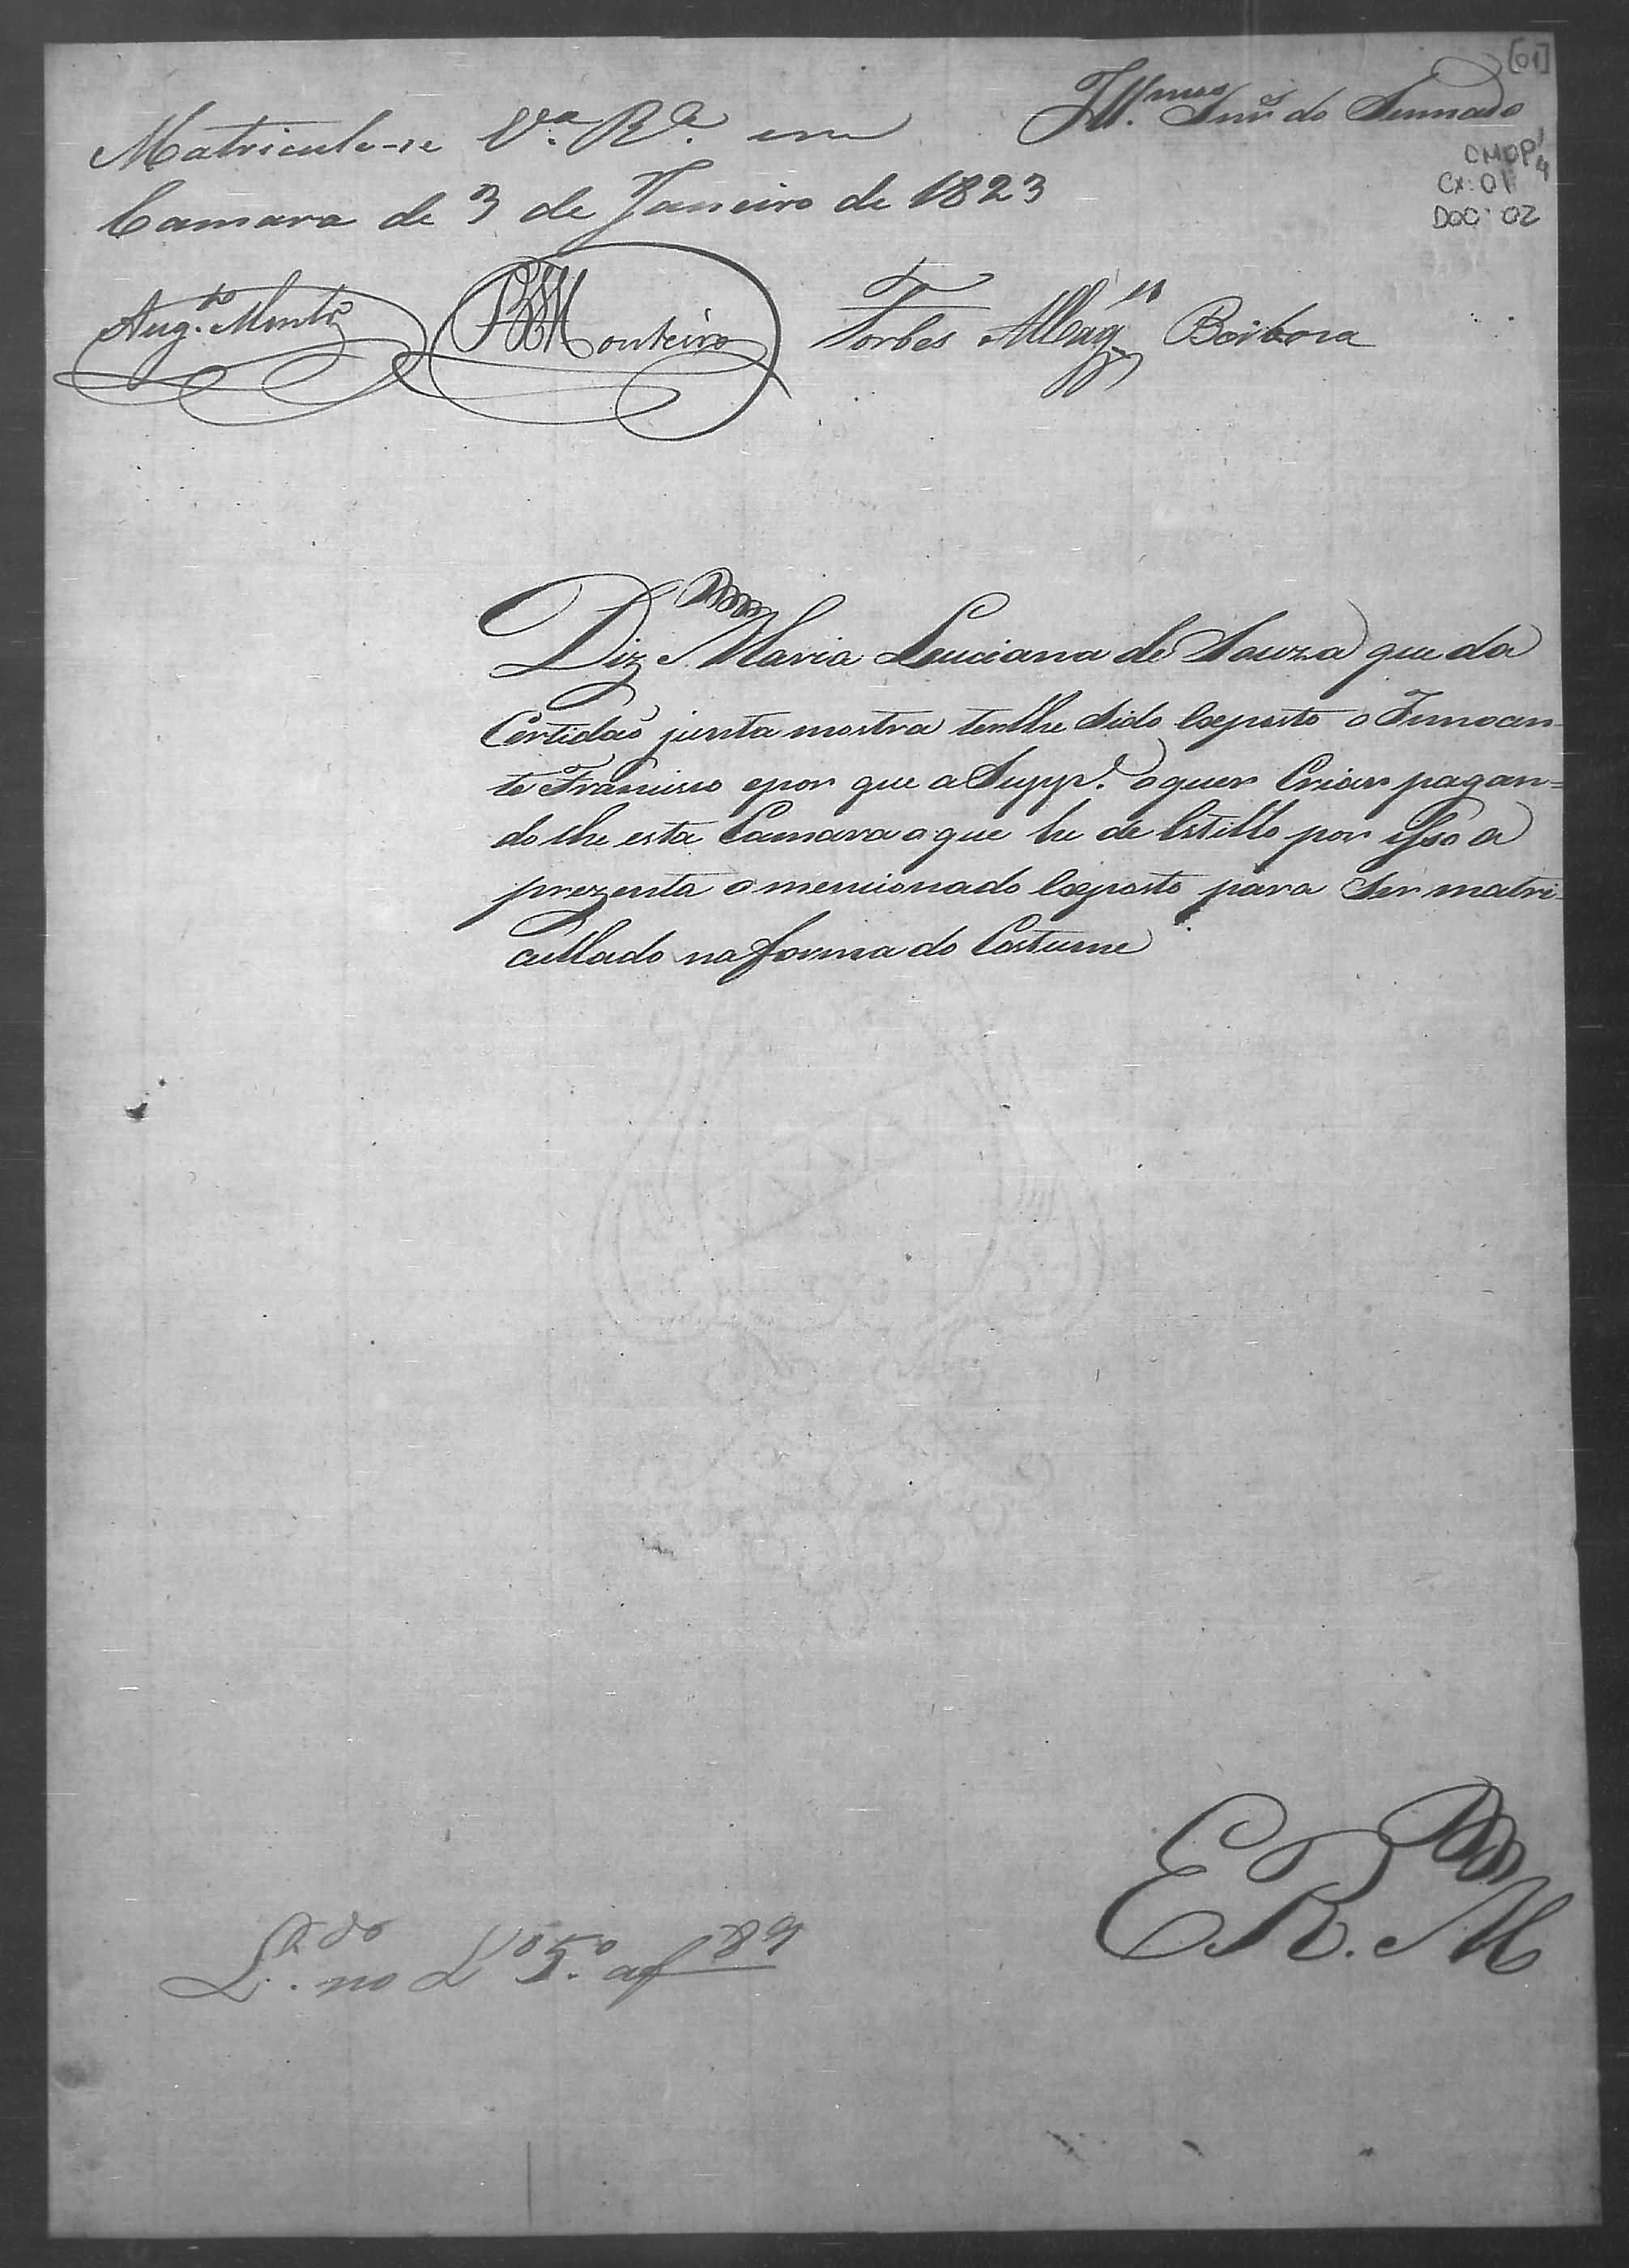 [01]
Ill.mos Snr.es do Sennado
CMOP
Cx: 01
DOC: 02
Matricule-se V.a R.a em
Camara de 3 de Janeiro de 1823
Aug.to Montr.o Monteiro Forbes Mag.es Barbosa
Diz Maria Luciana de Souza que da
Certidaõ junta mostra terlhe Sido exposto o Innocen-
te Francisco epor que a Supp.e o quer Criar pagan=
do lhe esta Camara o que he de Estillo por isso a
prezenta o mencionado exposto para Ser matri-
cullado na forma do Costume
E R. M
L.do no L.o 5.o af 89